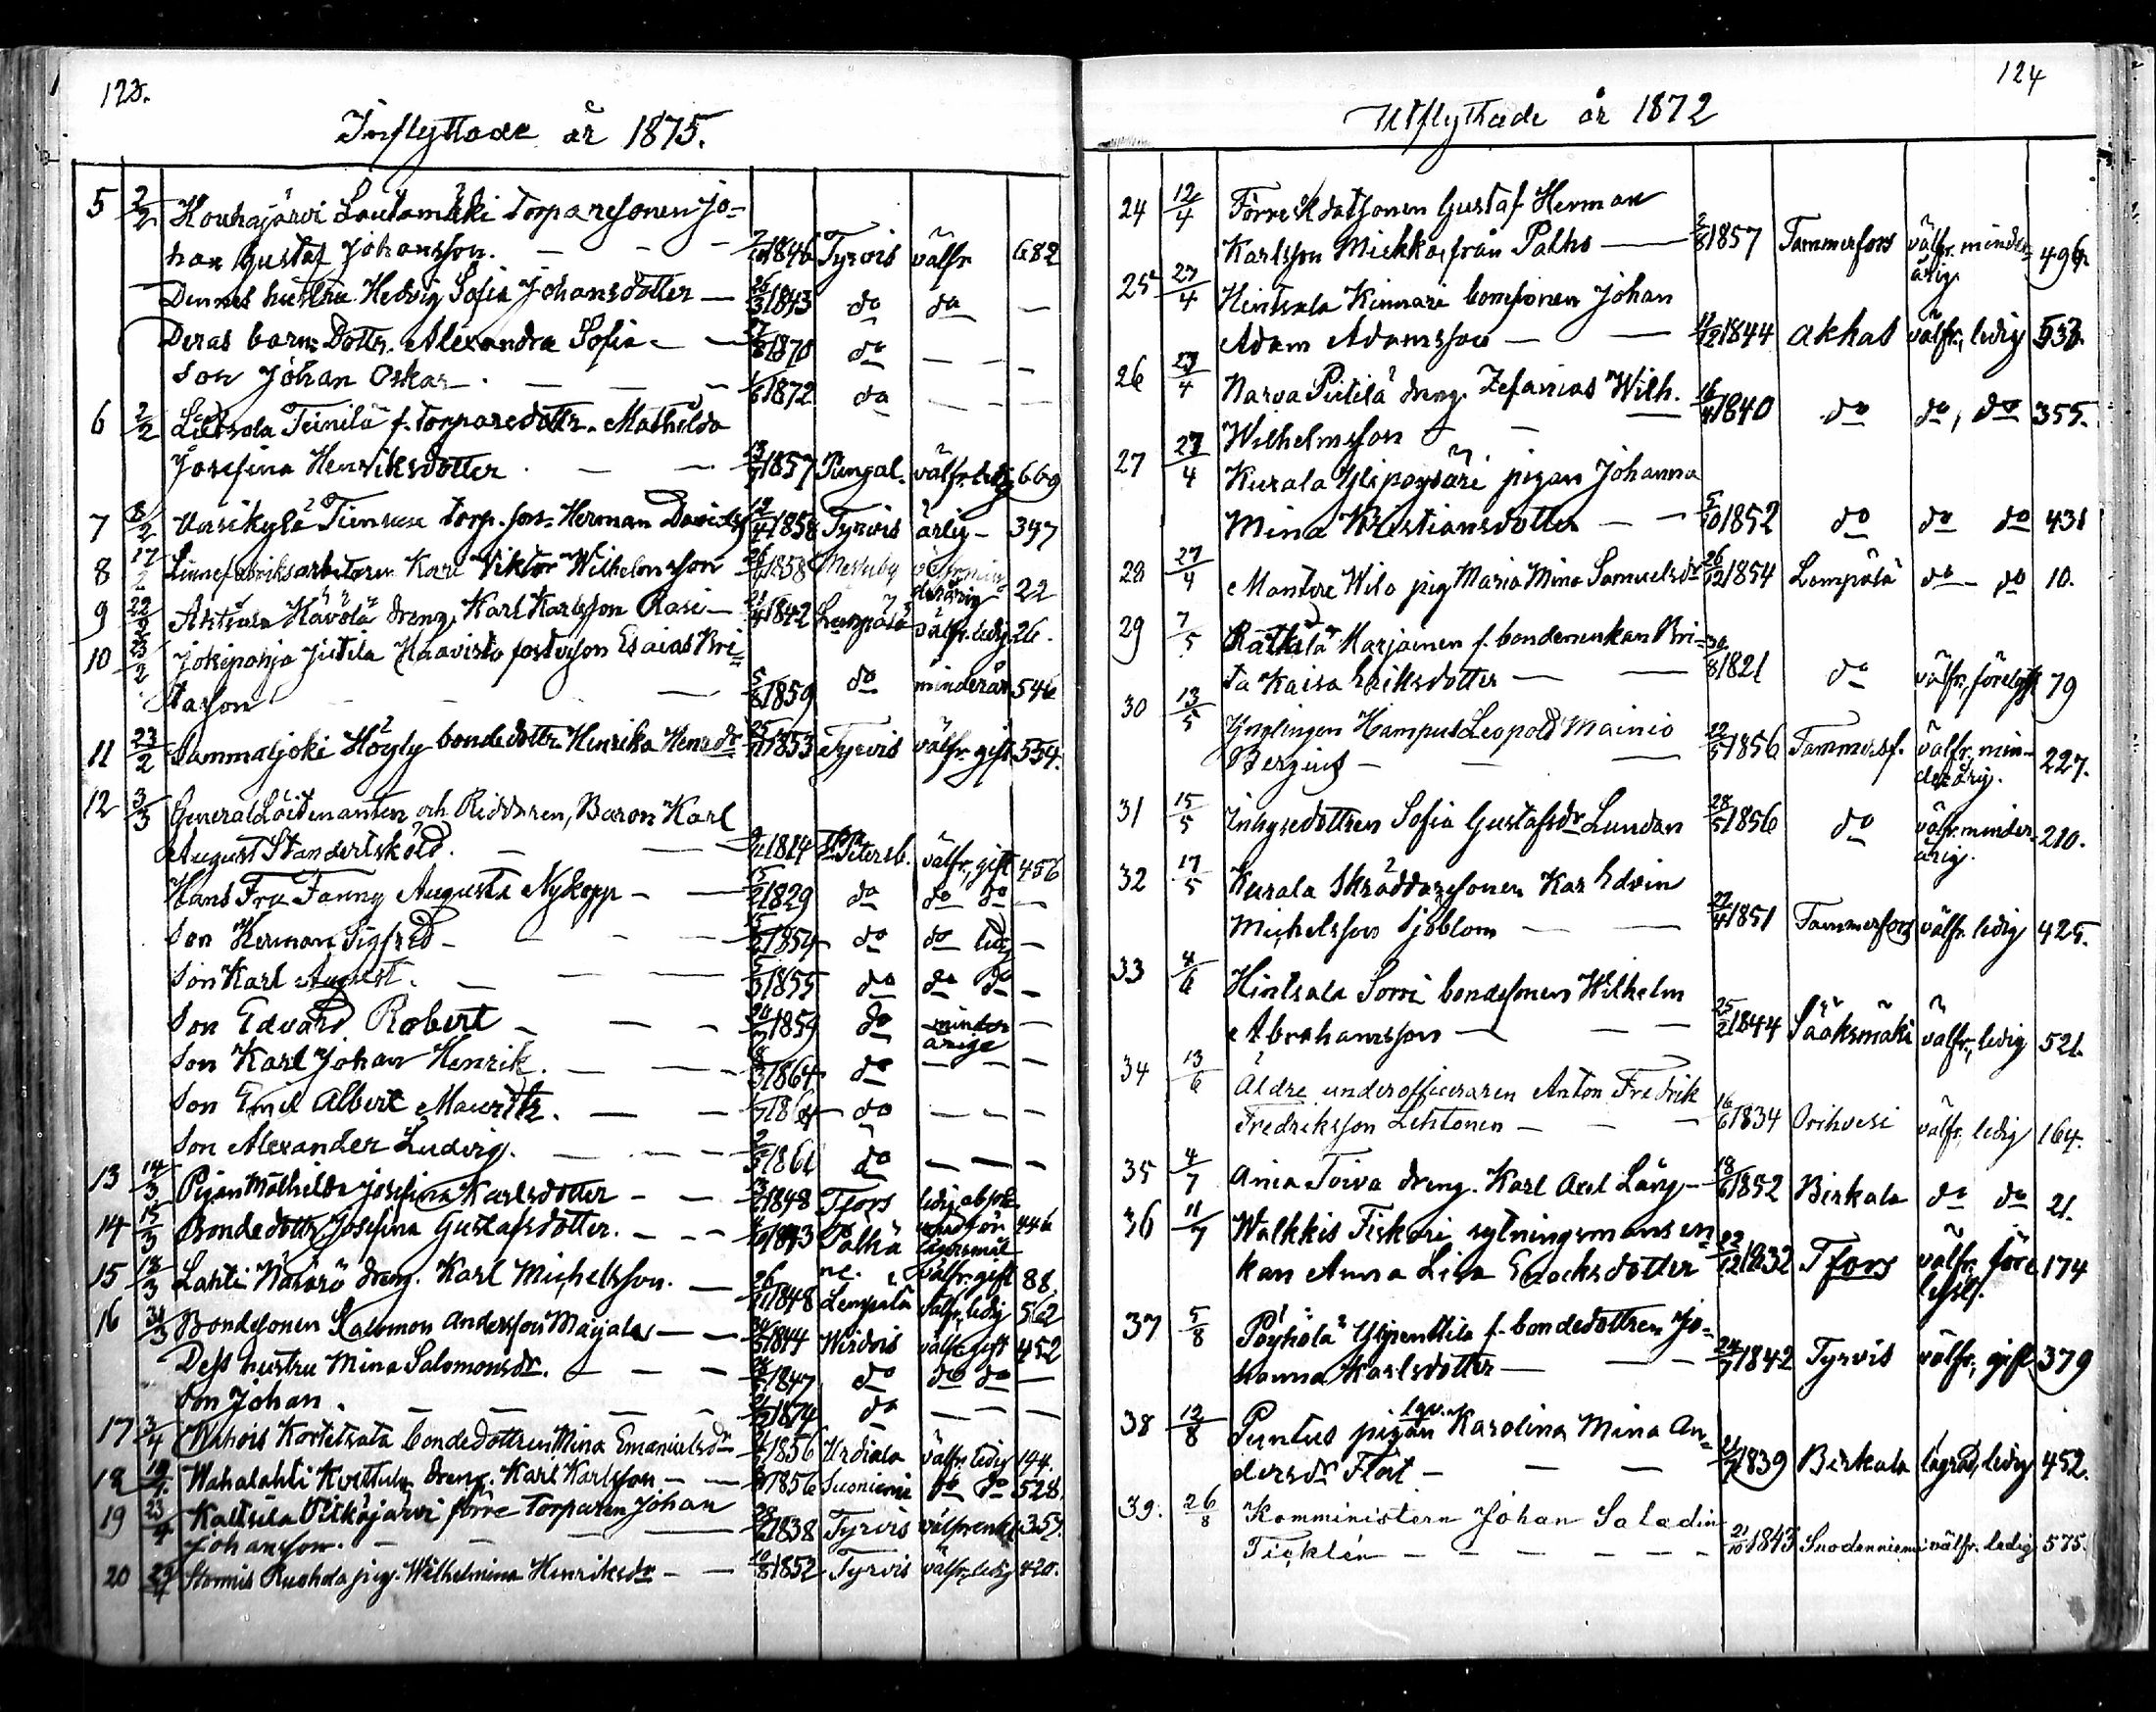 123.
Inflyttade år 1875.
5 2/2 Kouhajärvi Lautamäki torparesonen Jo-
han Gustaf Johansson. 1846 Tyrvis välfr 682
Dennes hustru Hedvig Sofia Johansdotter — 26/3 1843 do do —
Deras barn: Dottr. Alexandra Sofia — 1870 do — — —
Son Johan Oskar — 1872 do — — —
6 2/2 Liuksola Teinilä f. torparedottr. Mathilda
Josefina Henriksdotter — 1857 Pungal. välfr. ledig 669
7 8/2 Uusikylä Torp. son Herman Davidss 1858 Tyrvis ärlig — 397
8 17/2 Linnefabriksarbetaren Karl Viktor Wilhelmsson 1858 Messuby välfr. min-
derårig 22
9 22/2 Ahtiala Hävölä dreng. Karl Karlsson Rasi — 1842 Lempälä välfr. ledig 26.
10 23/2 Jokipohja Jutila Haavisto fosterson Esaias Bri-
tason — 5/8 1859 do minderår 546
11 23/2 Sammaljoki Höyly bondedottr Henrika Henrsdr 1853 Tyrvis välfr. gift 554.
12 3/3 General Löitenanten och Riddaren, Baron Karl
August Standertskjöld. — 1814 St. Petersb. välfr., gift 456
Hans Fru Fanny Augusta Nykopp — 1829 do do do —
Son Herman Sigfred — 1854 do do ledig —
Son Karl August. — 1855 do do do —
Son Edvard Robert — 1859 do minder
årige —
Son Karl Johan Henrik. 1864 do — — —
Son Emil Albert Mauritz. — do — — —
Son Alexander Ludvig. — 1861 do — — —
13 14/3 Pigan Mathilda Josefina Karlsdotter — 1848 Tfors ledig, absol.
14 15/3 Bondedottr. Josefina Gustafsdotter. — 1843 Pälkä- för
lägersmål 446
15 18/3 Lahti dreng. Karl Michelsson. — ne. välfr. gift 88.
26/11 1848 Lempälä välfr., ledig 562
16 31/3 Bondesonen Salomon Andersson Maijala — 1844 Wirdois välfr. gift 452
Dess hustru Mina Salomonsdr. — 1847 do do do —
Son Johan. — 1874 do — — —
17 3/4 Wihois Kortetsata bondedottren Mina Emanuelsdr 1856 Urdiala välfr. ledig 194.
18 19/4 Wahalahti dreng. Karl Karlsson — 1856 Suoniemi do do 528.
19 23/4 Kaltsila Pitkäjärvi förre Torparen Johan
Johansson. — 28/ 1838 Tyrvis välfr. enkl. 357.
20 29/4 Stormis Ruohola pig. Wilhelmina Henriksdr — 10/8 1852 Tyrvis välfr., ledig 420.
124
Utflyttade år 1872
24 12/4 Förre Sonen Gustaf Herman
Karlsson Miekka, från Palho — 2/8 1857 Tammerfors välfr. minder-
årig. 496.
25 27/4 Hintsala Kinnari bondsonen Johan
Adam Adamsson — 11/12 1844 Akkas välfr., ledig 533.
26 27/4 Narva Pietilä dreng. Zefanias Wilh.
Wilhelmsson — 16/4 1840 do do, do 355.
27 27/4 Kurala Ylipoysäri pigan Johanna
Mina Kristiansdotter — 5/10 1852 do do do 431
28 27/4 Mantere Wilo pig Maria Mina Samuelsdr 26/12 1854 Lempälä do — do 10.
29 7/5 Ratkila Marjainen f. bondenenkan Bri-
ta Kaisa Eriksdotter — 30/8 1821 do välfr., förelgft 79
30 13/5 Ynglingen Hampus Leopold Mainio
Bergius — 22/5 1856 Tammerf. välfr. min-
derårig. 227.
31 15/5 Inhysedottren Sofia Gustafsdr Lundan 28/5 1856 do välfr. minder-
årig. 210.
32 17/5 Kurala Skräddaresonen Karl Edvin
Michelsson Sjöblom — 27/4 1851 Tammerfors välfr. ledig 425.
33 4/6 Hintsala Sorri bondesonen Wilhelm
Abrahamsson — 25/2 1844 Sääksmäki välfr., ledig 521.
34 13/6 Äldre underofficeraren Anton Fredrik
Fredriksson Lehtonen — 16/6 1834 Orihvesi välfr. ledig 164.
35 4/7 Ania Toiva dreng. Karl Axel Lång — 18/6 1852 Birkala do do 21.
36 11/7 Walkkis Fiskari sytningsmansen-
kan Anna Lisa Enochsdotter 22/12 1832 Tfors välfr. före-
174
37 5/8 Pöyhölä Ylipenttila f. bondedottren Jo-
hanna Karlsdotter — 24/7 1842 Tyrvis välfr., gift 379
38 12/8 Puntus pigan Karolina Mina An-
dersdr Flort — 1839 Birkala lägrad, ledig 452.
39. 26/8 Komministern Johan Saladin
Ticklén — 21/10 1843 Suodenniemi välfr. ledig 575.